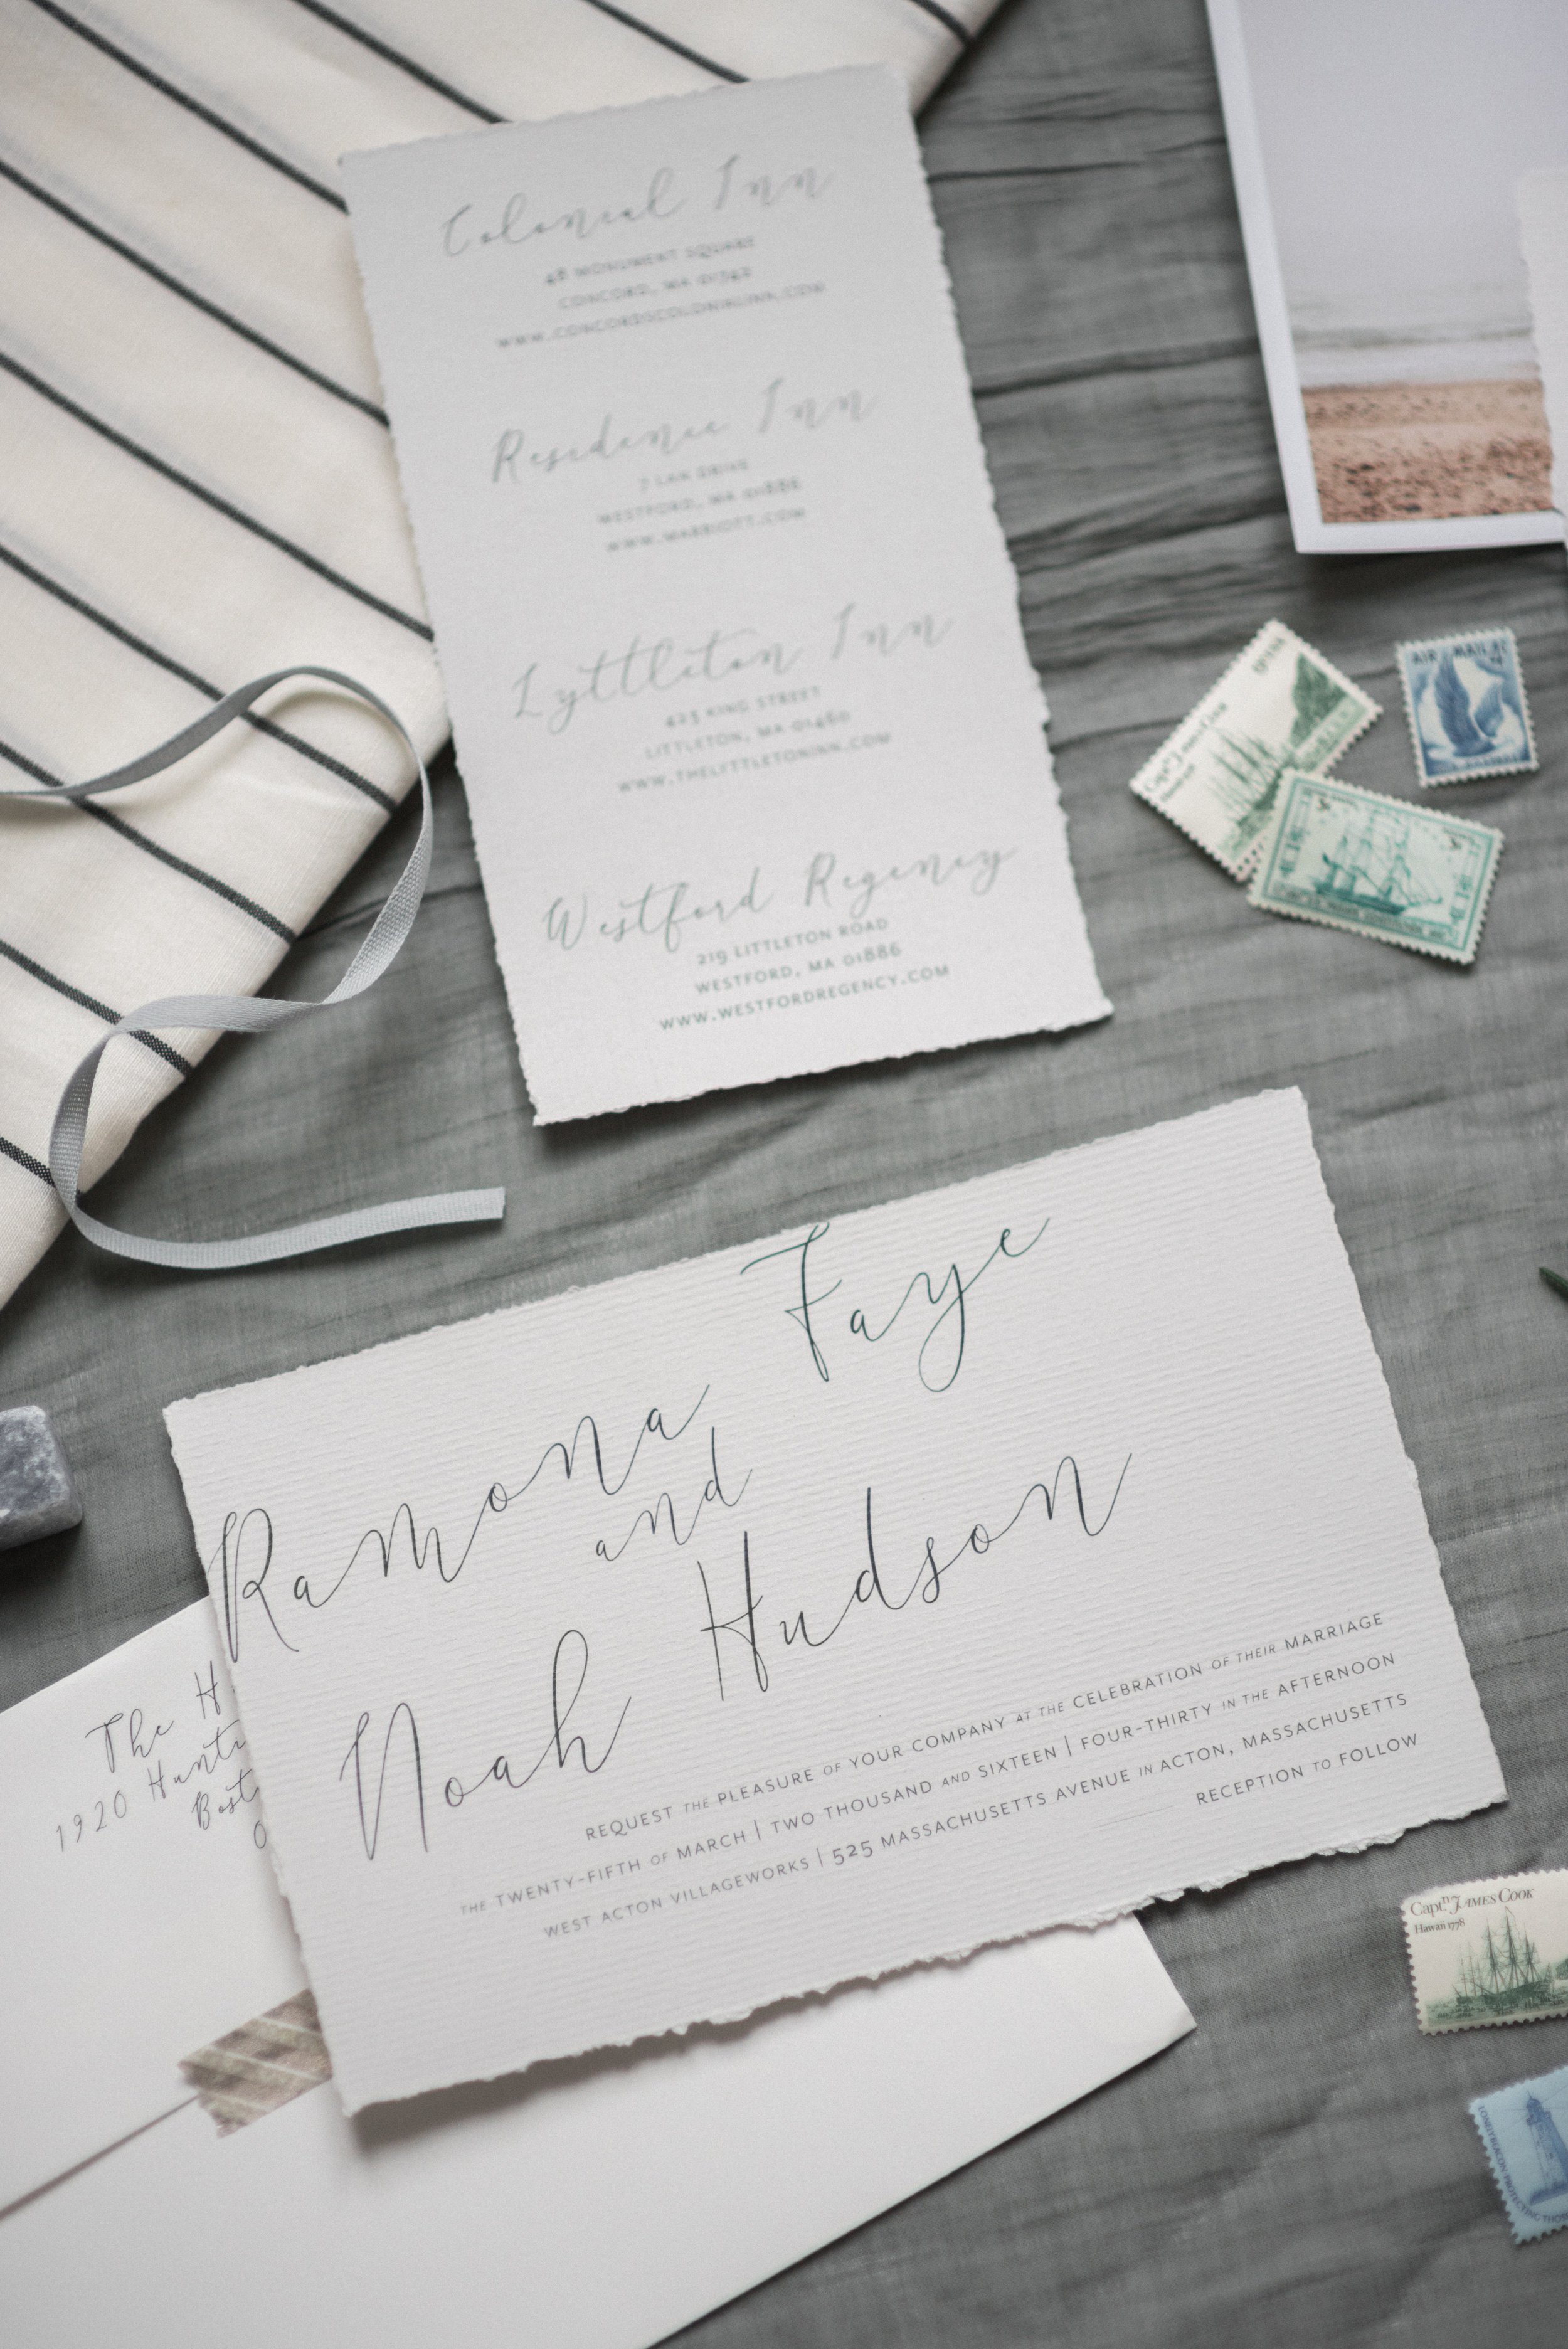 Colonial Inn
48 MONUMENT SQUARE
CONCORD, MA 01742
WWW.CONCORDSCOLONIALINN.COM
Residence Inn
7 LAN DRIVE
WESTFORD, MA 01886
WWW.MARRIOTT.COM
Lyttleton Inn
425 KING STREET
LITTLETON, MA 01460
WWW.THELYTTLETONINN.COM
Westford Regency
219 LITTLETON ROAD
WESTFORD, MA 01886
WWW.WESTFORDREGENCY.COM
AIR MAIL
Captn James Cook
Hawaii
Ramona Faye
and
Noah Hudson
REQUEST THE PLEASURE OF YOUR COMPANY AT THE CELEBRATION OF THEIR MARRIAGE
THE TWENTY-FIFTH OF MARCH | TWO THOUSAND AND SIXTEEN | FOUR-THIRTY IN THE AFTERNOON
WEST ACTON VILLAGEWORKS | 525 MASSACHUSETTS AVENUE IN ACTON, MASSACHUSETTS
RECEPTION TO FOLLOW
The H
1920 Hunti
Bost
0
Captn JAMES COOK
Hawaii 1778
LONELY BEACON PROTECTING THOS